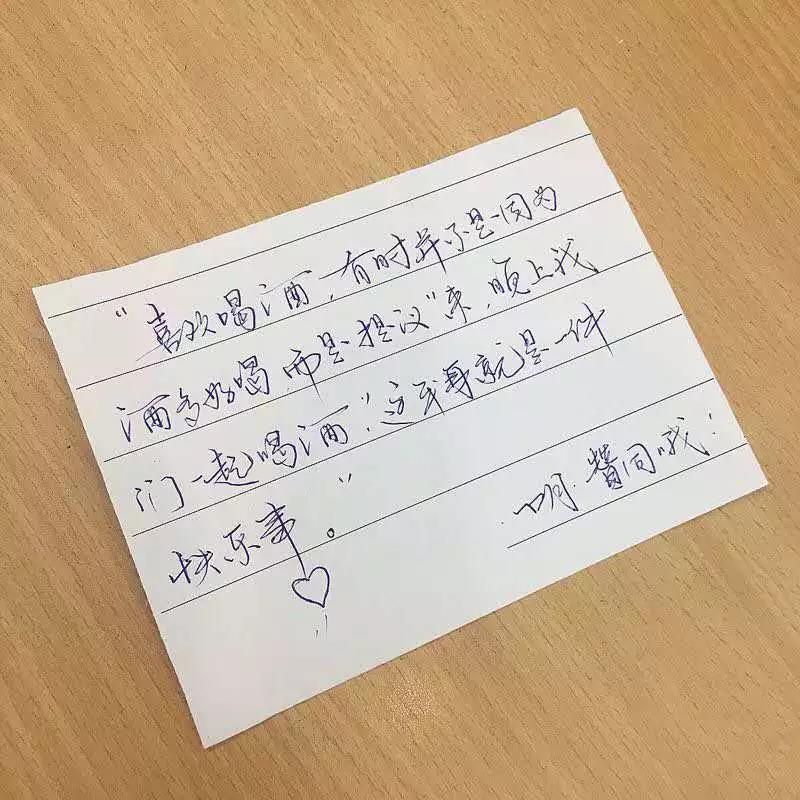 “喜欢喝酒,有时并不是因为
酒多好喝,而是提议“来,晚上我
们一起喝酒”这本身就是一件
快乐事。”
赞同哦!